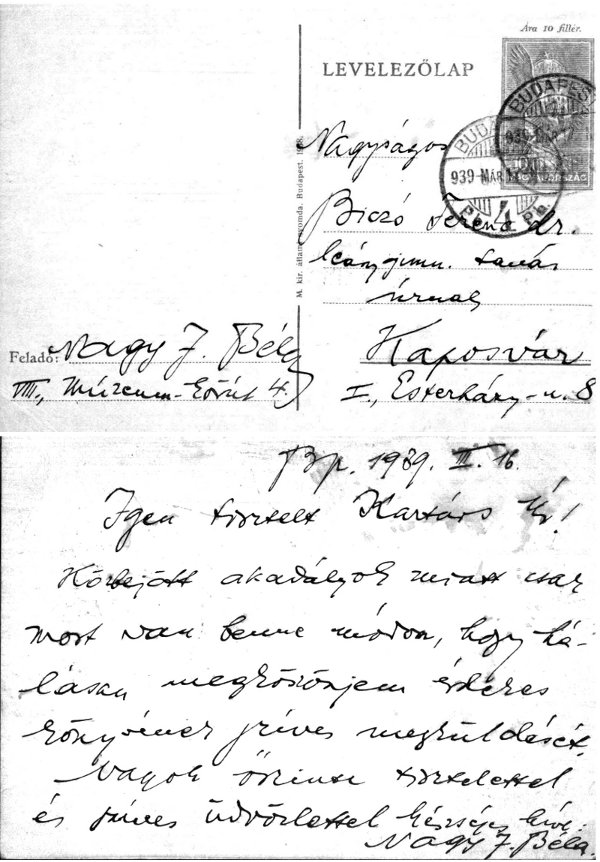 Ára 10 fillér.
LEVELEZŐLAP
BUDAPEST
939 MÁR
4
MAGYARORSZÁG
M. kir. állami nyomda. Budapest.
Nagyságos
Biczó Ferenc dr.
leánygimn. tanár
úrnak
Kaposvár
I., Esterházy-u. 8
Feladó: Nagy J. Béla
VIII., Múzeum-körút 4.
Bp. 1939. III. 16.
Igen tisztelt Kartárs Úr!
Közbejött akadályok miatt csak
most van benne módom, hogy há-
lásan megköszönjem érdekes
könyvének szíves megküldését.
Vagyok őszinte tisztelettel
és szíves üdvözlettel készséges híve:
Nagy J. Béla.